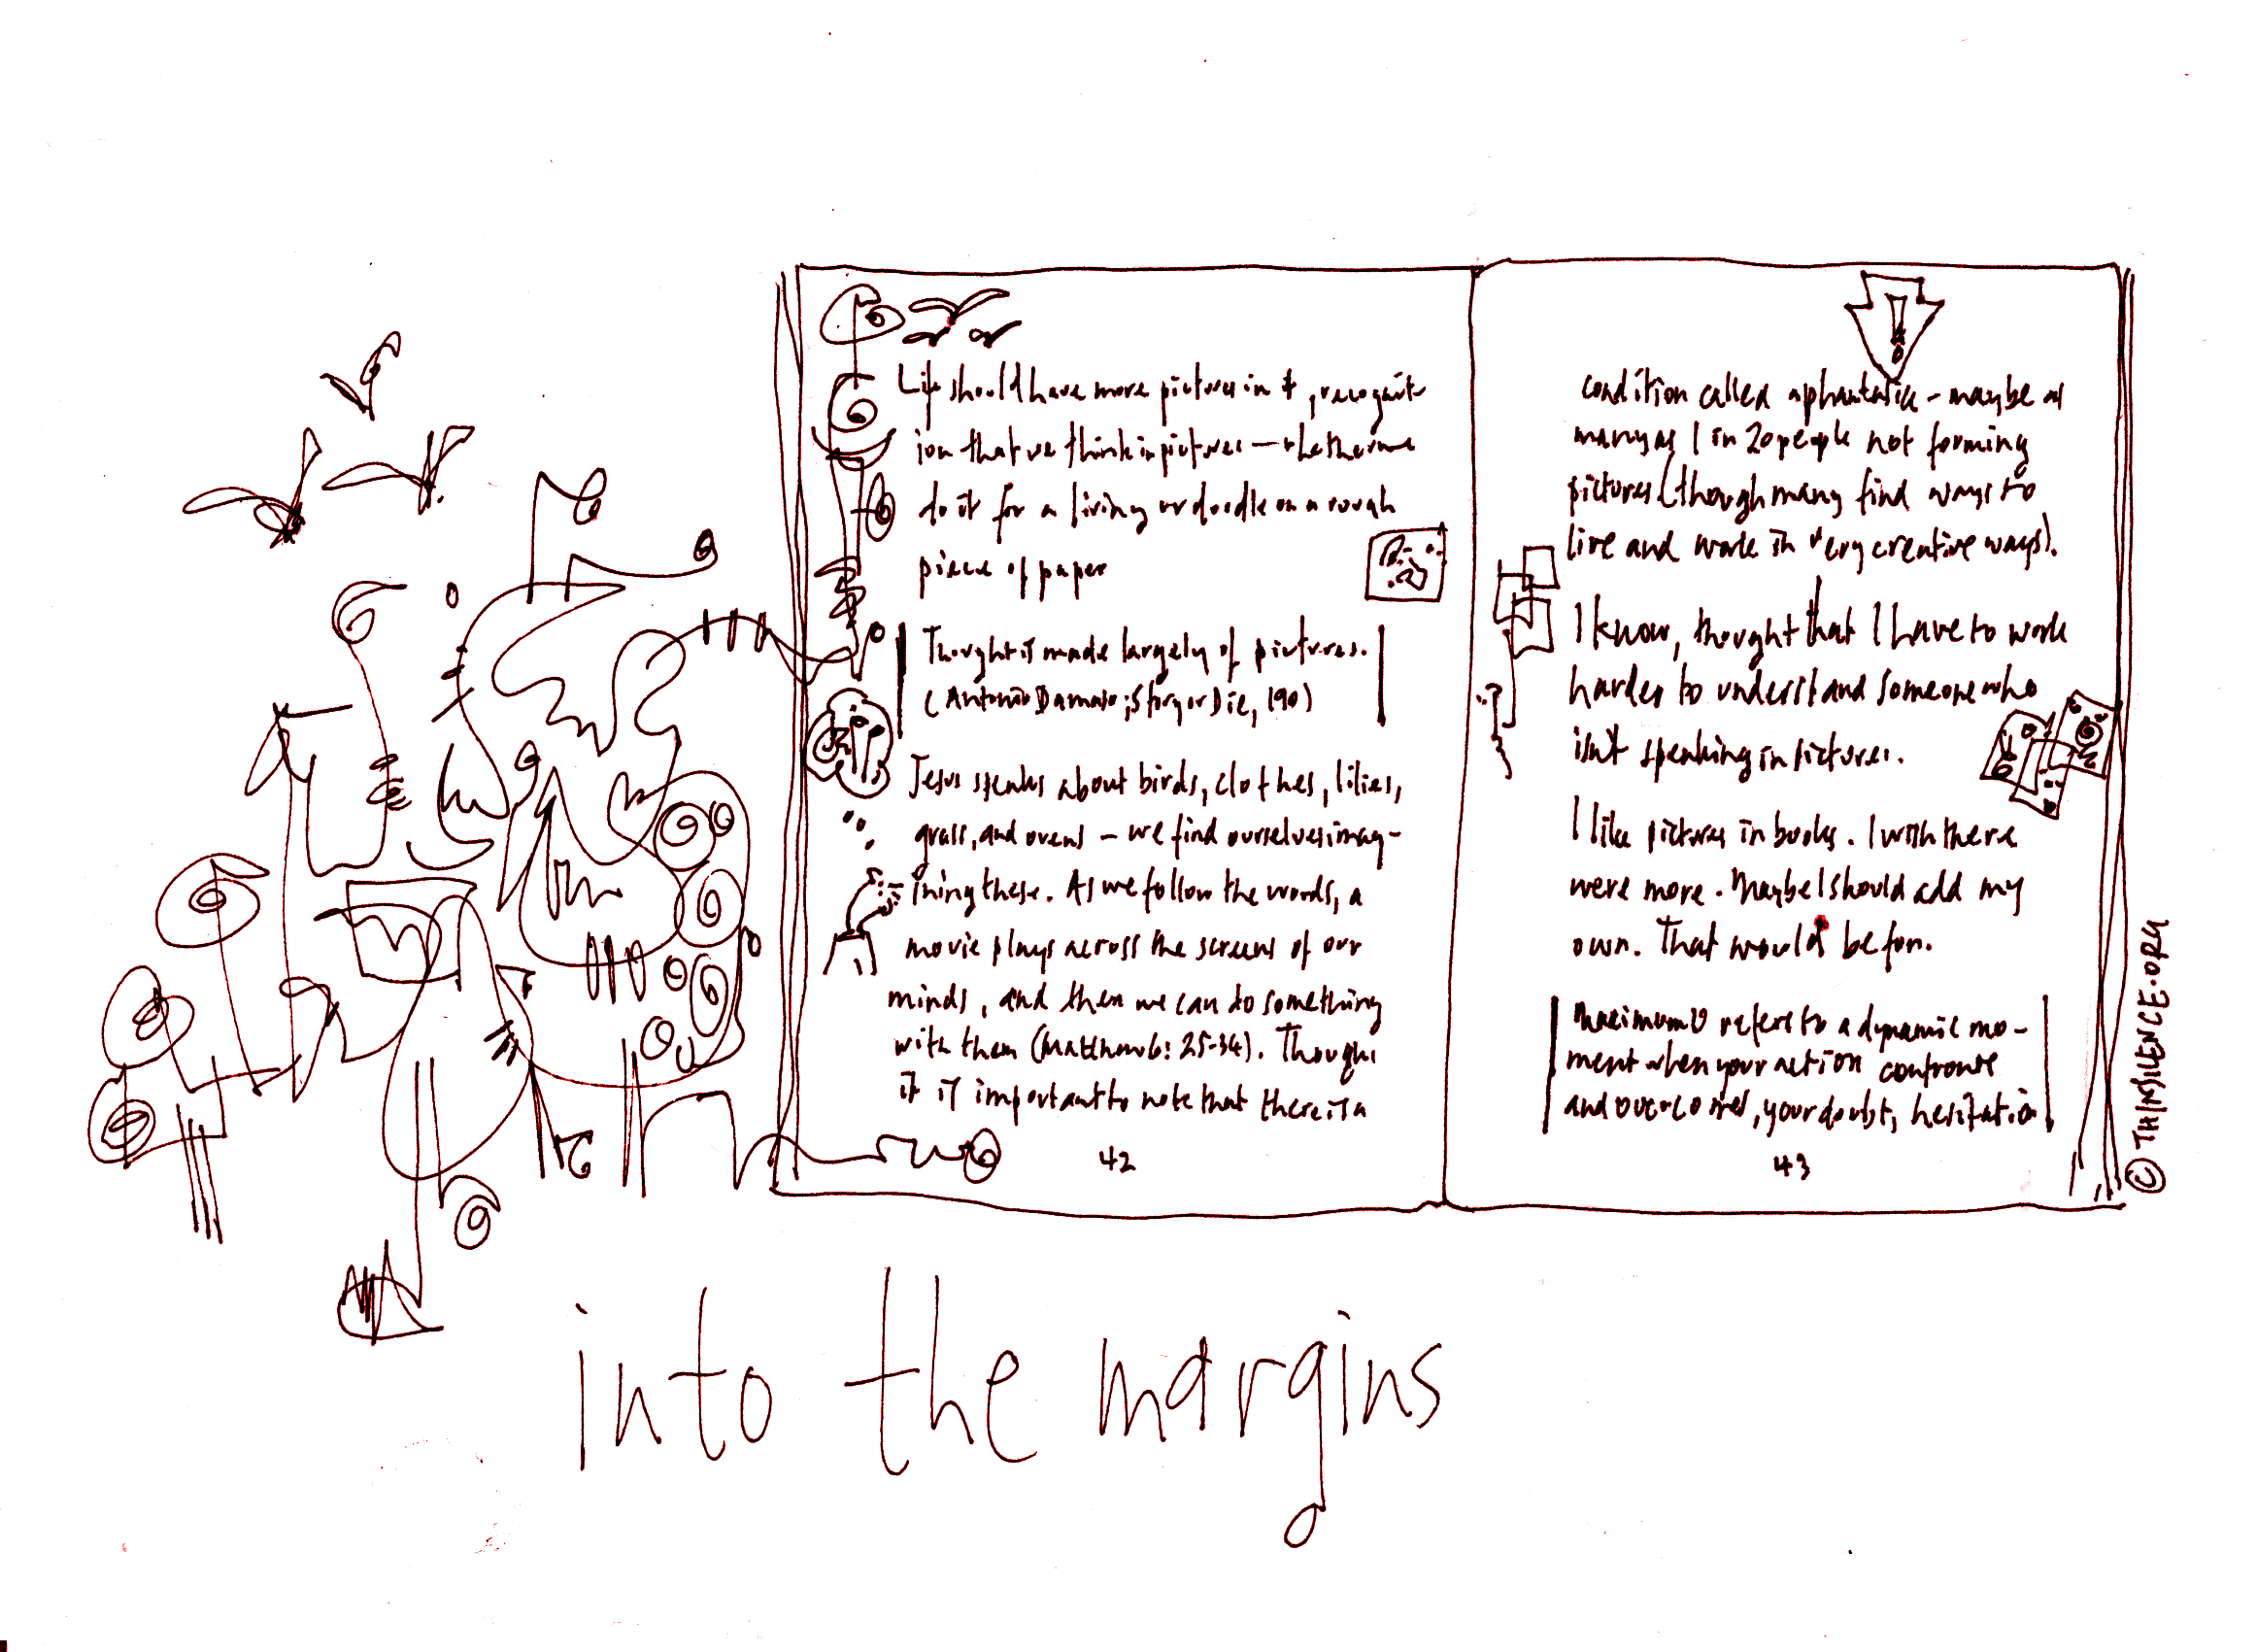 Life should have more pictures in it, recognit-
ion that we think in pictures — whether we
do it for a living or doodle on a rough
piece of paper
Thought is made largely of pictures.
(Antonio Damasio; Story or Die, 190)
Jesus speaks about birds, clothes, lilies,
grass, and ovens – we find ourselves imag-
ining these. As we follow the words, a
movie plays across the screens of our
minds, and then we can do something
with them (Matthew 6: 25-34). Though
it is important to note that there is a
42
condition called aphantasia – maybe as
many as 1 in 20 people not forming
pictures (though many find ways to
live and work in very creative ways).
I know, thought that I have to work
harder to understand someone who
isn't speaking in pictures.
I like pictures in books. I wish there
were more. Maybe I should add my
own. That would be fun.
refers to a dynamic mo-
ment when your action confronts
and overcomes, your doubt, hesitation
43
© THINSILENCE.ORG
into the margins